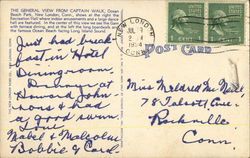 THE GENERAL VIEW FROM CAPTAIN WALK, Ocean
Beach Park, New London, Conn., shows at the right the
Recreation Hall where indoor amusements and a large dance
hall are featured. In the center of this view we see the Grill
with terrace dining, and at the left the long boardwalk and
the famous Ocean Beach facing Long Island Sound.
NEW LONDON
JUL
2
1954
CONN.
POST CARD
Just had break-
fast in Hotel
Dining room.
Dining at
Howard John-
sons & had
a good swim.
Love
Mabel & Malcolm
Bobbie & Carol
Miss Mildred Mc Neill
78 Talcott Ave.
Rockville
Conn.